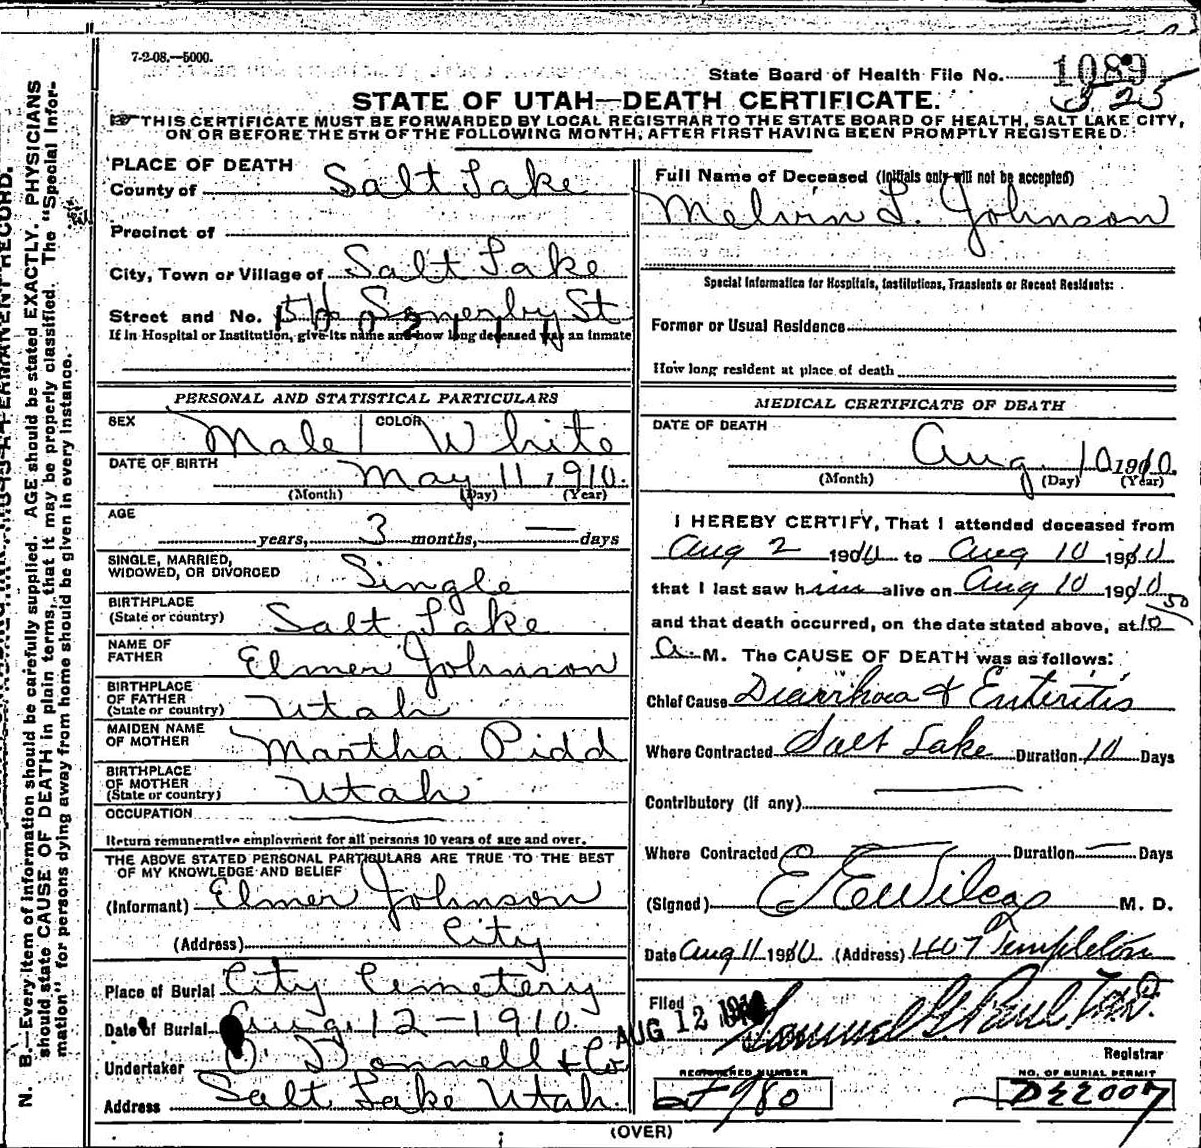 7-2-08.—5000.
State Board of Health File No. 1089
325
STATE OF UTAH—DEATH CERTIFICATE.
THIS CERTIFICATE MUST BE FORWARDED BY LOCAL REGISTRAR TO THE STATE BOARD OF HEALTH, SALT LAKE CITY,
ON OR BEFORE THE 5TH OF THE FOLLOWING MONTH, AFTER FIRST HAVING BEEN PROMPTLY REGISTERED.
N. B.—Every item of information should be carefully supplied. AGE should be stated EXACTLY. PHYSICIANS
should state CAUSE OF DEATH in plain terms, that it may be properly classified. The "Special Infor-
mation" for persons dying away from home should be given in every instance.
PLACE OF DEATH
County of Salt Lake
Precinct of
City, Town or Village of Salt Lake
Street and No. St
If in Hospital or Institution, give its name and how long deceased was an inmate
PERSONAL AND STATISTICAL PARTICULARS
SEX Male COLOR White
DATE OF BIRTH May 11, 1910.
(Month) (Day) (Year)
AGE
years, 3 months, — days
SINGLE, MARRIED,
WIDOWED, OR DIVORCED Single
BIRTHPLACE
(State or country) Salt Lake
NAME OF
FATHER Elmer Johnson
BIRTHPLACE
OF FATHER
(State or country) Utah
MAIDEN NAME
OF MOTHER Martha Pidd
BIRTHPLACE
OF MOTHER
(State or country) Utah
OCCUPATION
Return remunerative employment for all persons 10 years of age and over.
THE ABOVE STATED PERSONAL PARTICULARS ARE TRUE TO THE BEST
OF MY KNOWLEDGE AND BELIEF
(Informant) Elmer Johnson
(Address) City
Place of Burial City Cemetery
Date of Burial Aug. 12-1910
Undertaker O'Donnell & Co.
Address Salt Lake Utah.
Full Name of Deceased (Initials only will not be accepted)
Melvin L. Johnson
Special Information for Hospitals, Institutions, Transients or Recent Residents:
Former or Usual Residence
How long resident at place of death
MEDICAL CERTIFICATE OF DEATH
DATE OF DEATH
Aug. 10 1910.
(Month) (Day) (Year)
I HEREBY CERTIFY, That I attended deceased from
Aug 2 1910 to Aug 10 1910
that I last saw him alive on Aug 10 1910
and that death occurred, on the date stated above, at 10 50
A. M. The CAUSE OF DEATH was as follows:
Chief Cause Diarrhoea & Enteritis
Where Contracted Salt Lake Duration 10 Days
Contributory (if any)
Where Contracted Duration — Days
(Signed) E E Wilcox M. D.
Date Aug 11 1910. (Address) 407 Templeton
Filed AUG 12 1910 Samuel G. Paul
Registrar
REGISTERED NUMBER
NO. OF BURIAL PERMIT
D22007
(OVER)